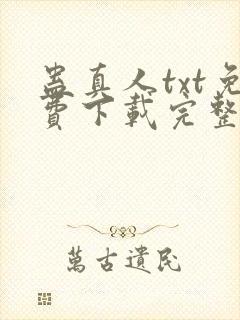 蛊真人txt免
費下載完整
萬古遺民